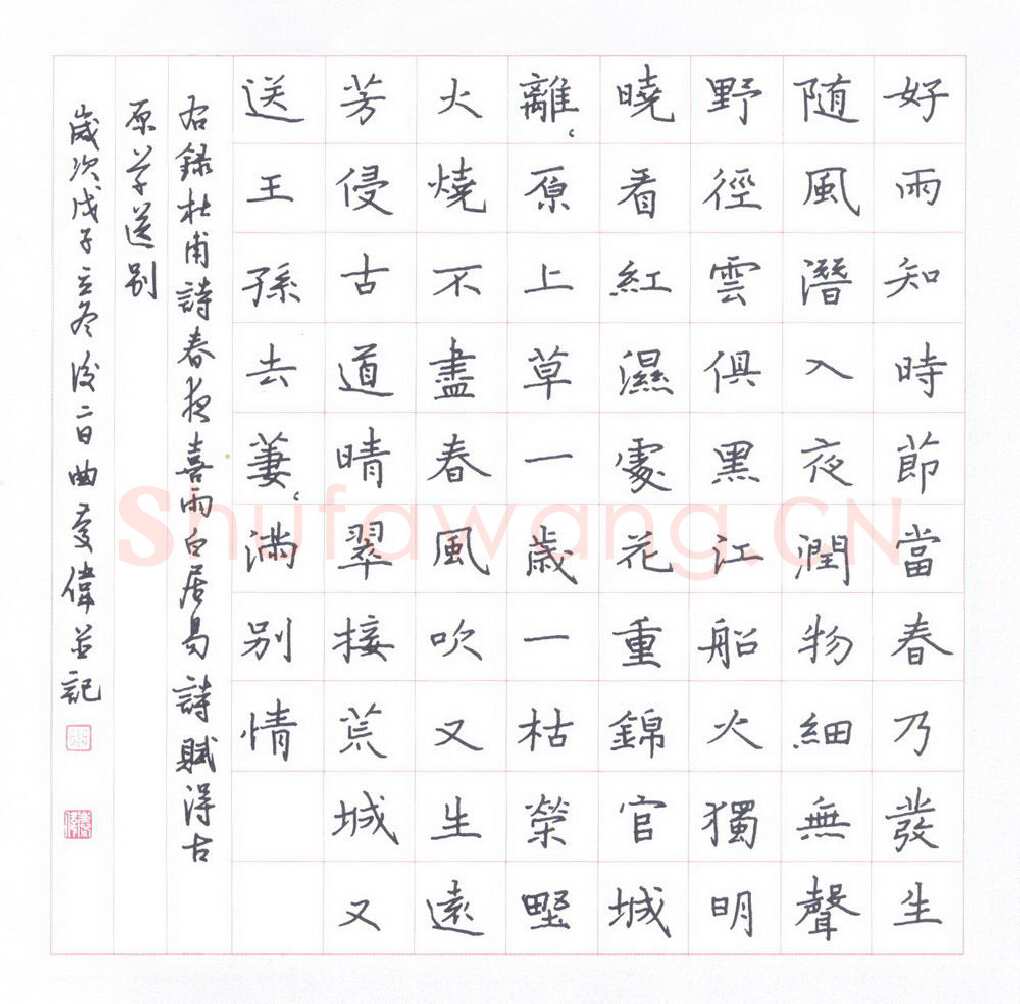 好雨知時節當春乃發生
随風潛入夜潤物細無聲
野徑雲俱黑江船火獨明
曉看紅濕處花重錦官城
離〻原上草一歲一枯榮墅
火燒不盡春風吹又生遠
芳侵古道晴翠接荒城又
送王孫去萋〻滿别情
右録杜甫詩春夜喜雨白居易詩賦得古
原草送别
歲次戊子立冬後二日曲慶偉並記
Shufawang.CN